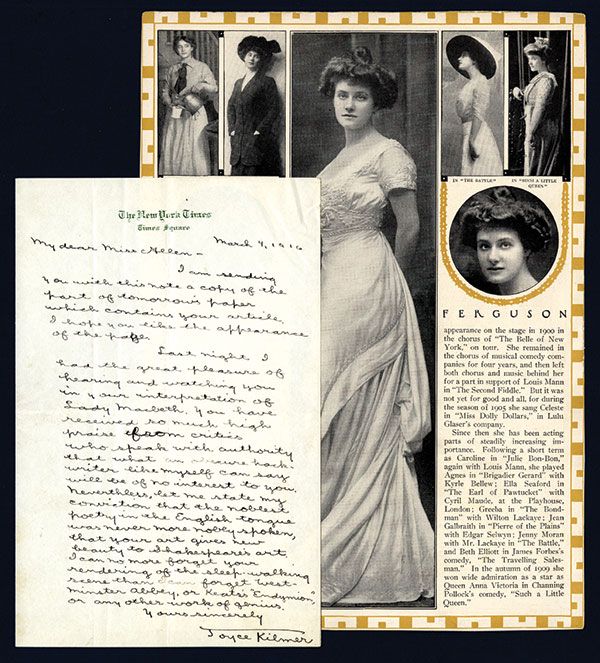 The New York Times
Times Square
March 4, 1916
My dear Miss Allen –
I am sending
you with this note a copy of the
part of tomorrow's paper
which contains your article.
I hope you like the appearance
of the page.
Last night I
had the great pleasure of
hearing and watching you
in your interpretation of
Lady Macbeth. You have
received so much high
praise from critics
who speak with authority
that what an obscure hack-
writer like myself can say
will be of no interest to you.
Nevertheless, let me state my
conviction that the noblest
poetry in the English tongue
was never more nobly spoken,
that your art gives new
beauty to Shakespeare's art.
I can no more forget your
rendering of the sleep-walking
scene than I can forget West-
minster Abbey, or Keats's "Endymion,"
or any other work of genius.
Yours sincerely
Joyce Kilmer
IN "THE BATTLE"
IN "SUCH A LITTLE
QUEEN"
FERGUSON
appearance on the stage in 1900 in
the chorus of "The Belle of New
York," on tour. She remained in
the chorus of musical comedy com-
panies for four years, and then left
both chorus and music behind her
for a part in support of Louis Mann
in "The Second Fiddle." But it was
not yet for good and all, for during
the season of 1905 she sang Celeste
in "Miss Dolly Dollars," in Lulu
Glaser's company.
Since then she has been acting
parts of steadily increasing im-
portance. Following a short term
as Caroline in "Julie Bon-Bon,"
again with Louis Mann, she played
Agnes in "Brigadier Gerard" with
Kyrle Bellew; Ella Seaford in
"The Earl of Pawtucket" with
Cyril Maude, at the Playhouse,
London; Greeba in "The Bond-
man" with Wilton Lackaye; Jean
Galbraith in "Pierre of the Plains"
with Edgar Selwyn; Jenny Moran
with Mr. Lackaye in "The Battle,"
and Beth Elliott in James Forbes's
comedy, "The Travelling Sales-
man." In the autumn of 1909 she
won wide admiration as a star as
Queen Anna Victoria in Channing
Pollock's comedy, "Such a Little
Queen."